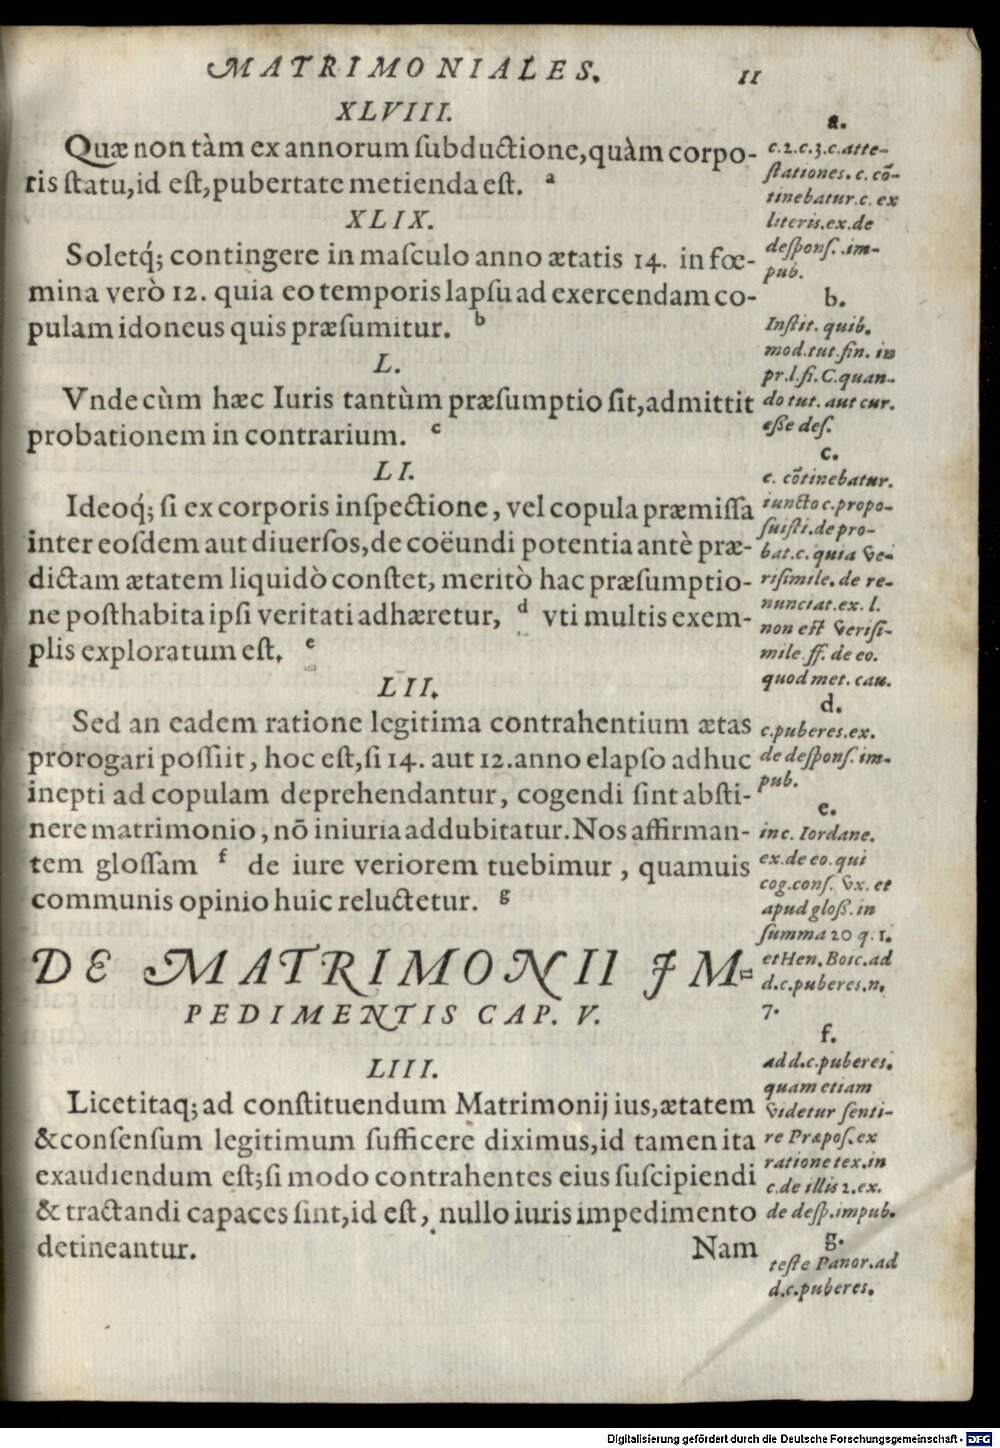 MATRIMONIALES. 11
XLVIII.
Quæ non tàm ex annorum ſubductione, quàm corpo-
ris ſtatu, id eſt, pubertate metienda eſt. a
XLIX.
Soletq́; contingere in maſculo anno ætatis 14. in fœ-
mina verò 12. quia eo temporis lapſu ad exercendam co-
pulam idoneus quis præſumitur. b
L.
Vnde cùm hæc Iuris tantùm præſumptio ſit, admittit
probationem in contrarium. c
LI.
Ideoq́; ſi ex corporis inſpectione, vel copula præmiſſa
inter eoſdem aut diuerſos, de coëundi potentia antè præ-
dictam ætatem liquidò conſtet, meritò hac præſumptio-
ne poſthabita ipſi veritati adhæretur, d vti multis exem-
plis exploratum eſt. e
LII.
Sed an eadem ratione legitima contrahentium ætas
prorogari poſſiit, hoc eſt, ſi 14. aut 12. anno elapſo adhuc
inepti ad copulam deprehendantur, cogendi ſint abſti-
nere matrimonio, nō iniuria addubitatur. Nos affirman-
tem gloſſam f de iure veriorem tuebimur, quamuis
communis opinio huic reluctetur. g
DE MATRIMONII IM-
PEDIMENTIS CAP. V.
LIII.
Licet itaq; ad conſtituendum Matrimonij ius, ætatem
& conſenſum legitimum ſufficere diximus, id tamen ita
exaudiendum eſt; ſi modo contrahentes eius ſuſcipiendi
& tractandi capaces ſint, id eſt, nullo iuris impedimento
detineantur. Nam
a.
c. 2. c. 3. c. atte-
ſtationes. c. cō-
tinebatur. c. ex
literis. ex. de
deſponſ. im-
pub.
b.
Inſtit. quib.
mod. tut. fin. in
pr. l. fi. C. quan-
do tut. aut cur.
eſſe deſ.
c.
c. cōtinebatur.
iuncto c. propo-
ſuiſti. de pro-
bat. c. quia ve-
riſimile. de re-
nunciat. ex. l.
non eſt veriſi-
mile. ff. de eo.
quod met. cau.
d.
c. puberes. ex.
de deſponſ. im-
pub.
e.
in c. Iordane.
ex. de eo. qui
cog. conſ. vx. et
apud gloſſ. in
ſumma 20 q. 1.
et Hen. Boic. ad
d. c. puberes. n.
7.
f.
ad d. c. puberes.
quam etiam
videtur ſenti-
re Præpoſ. ex
ratione tex. in
c. de illis 2. ex.
de deſp. impub.
g.
teſte Panor. ad
d. c. puberes.
Digitalisierung gefördert durch die Deutsche Forschungsgemeinschaft - DFG